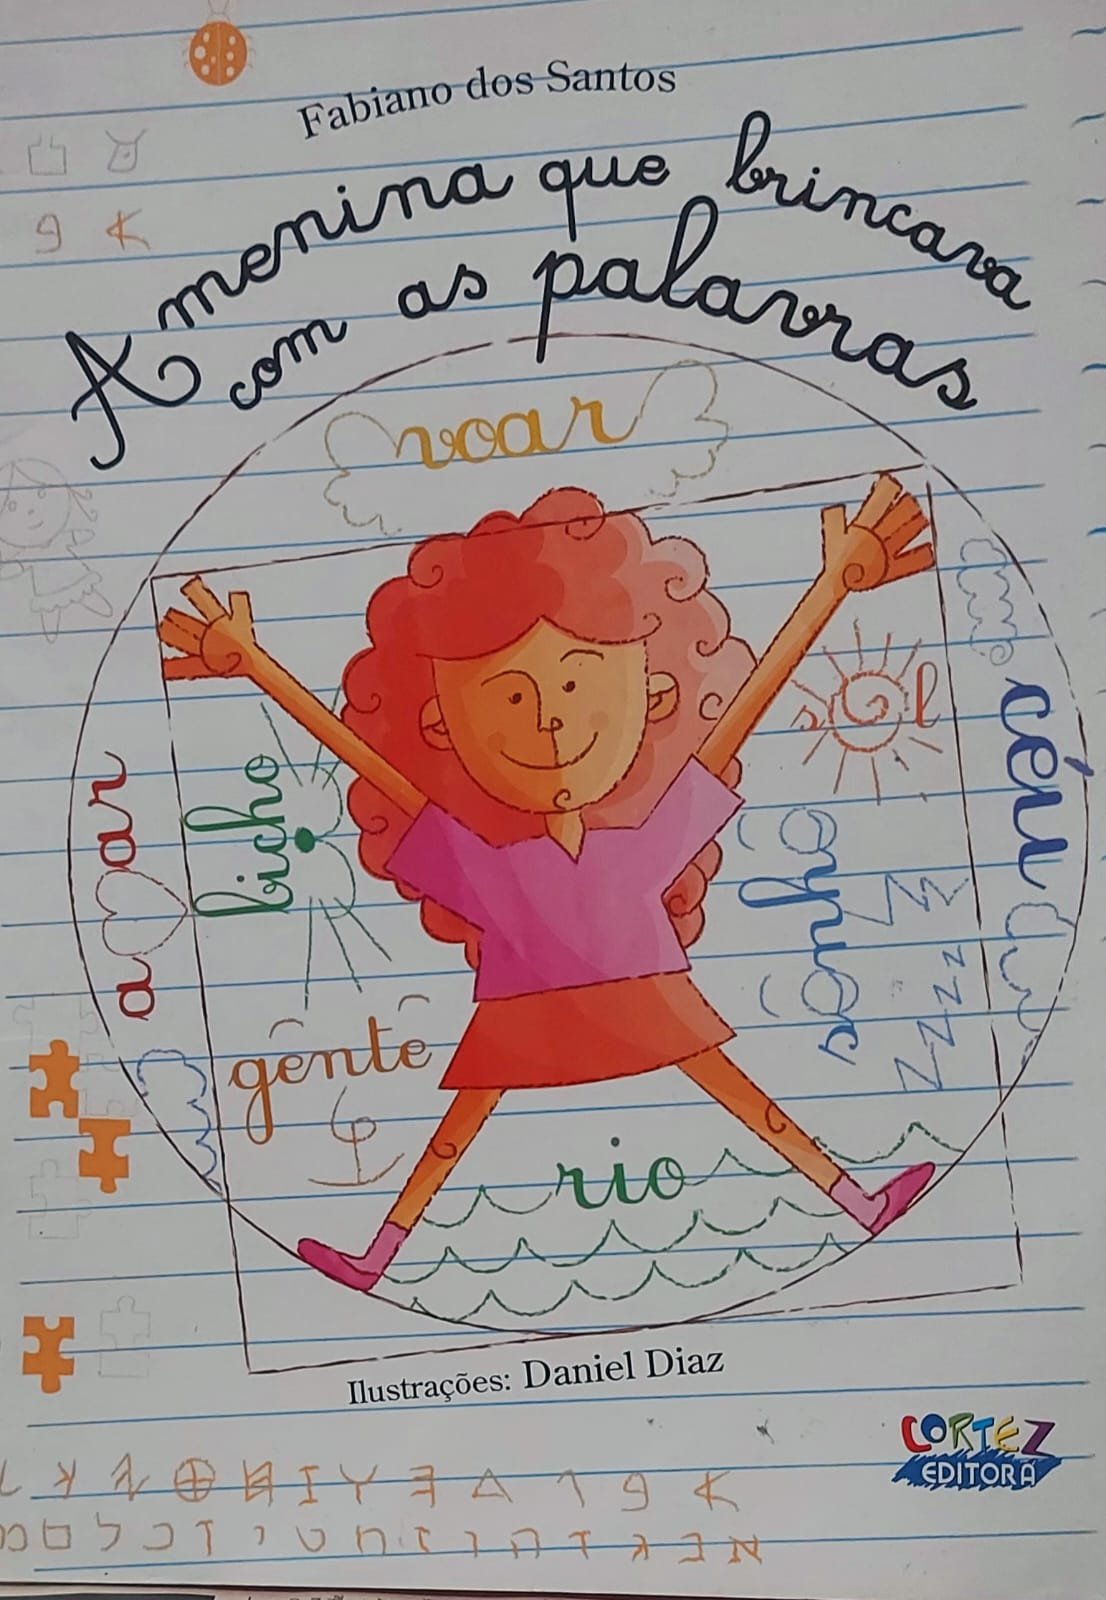 Fabiano dos Santos
A menina que brincava
com as palavras
voar
sol
céu
amar
bicho
sonhos
zzzz
gente
rio
Ilustrações: Daniel Diaz
CORTEZ
EDITORA
א ב ג ד ה ו ז ח ט י ך כ ל ם מ